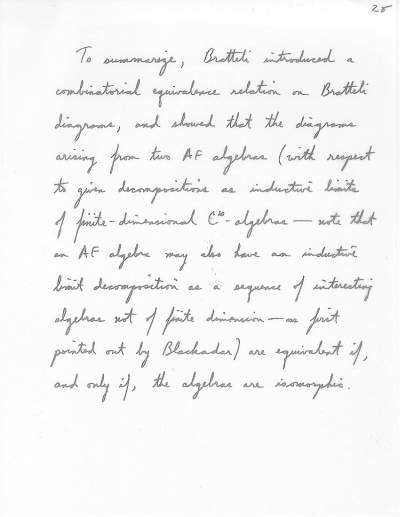 25
To summarize, Bratteli introduced a
combinatorial equivalence relation on Bratteli
diagrams, and showed that the diagrams
arising from two AF algebras (with respect
to given decompositions as inductive limits
of finite-dimensional C*-algebras — note that
an AF algebra may also have an inductive
limit decomposition as a sequence of interesting
algebras not of finite dimension — as first
pointed out by Blackadar) are equivalent if,
and only if, the algebras are isomorphic.